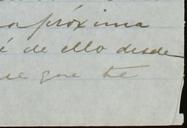 a próxima
é de ello desde
se que te